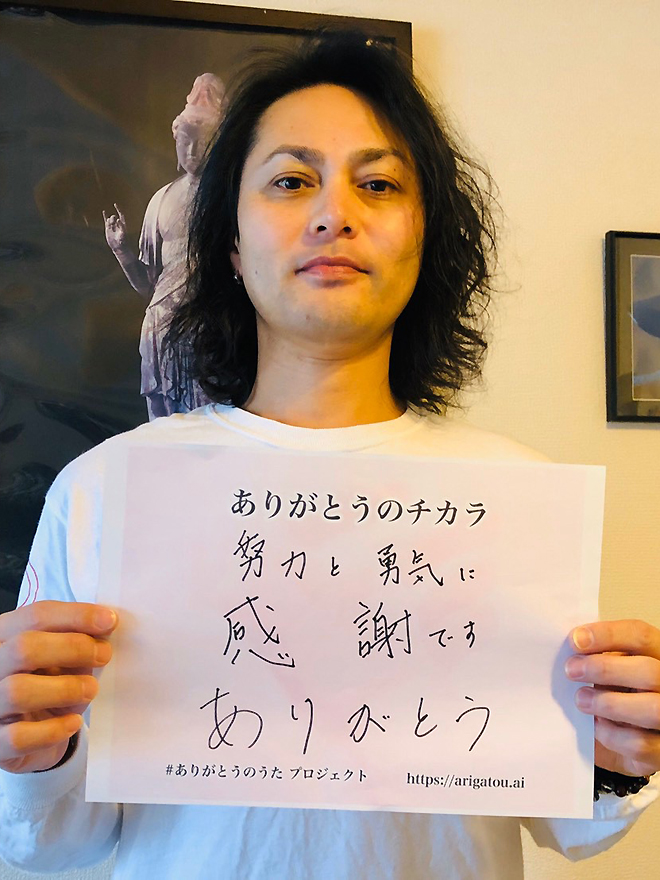 ありがとうのチカラ
努力と勇気に
感謝です
ありがとう
#ありがとうのうた プロジェクト https://arigatou.ai